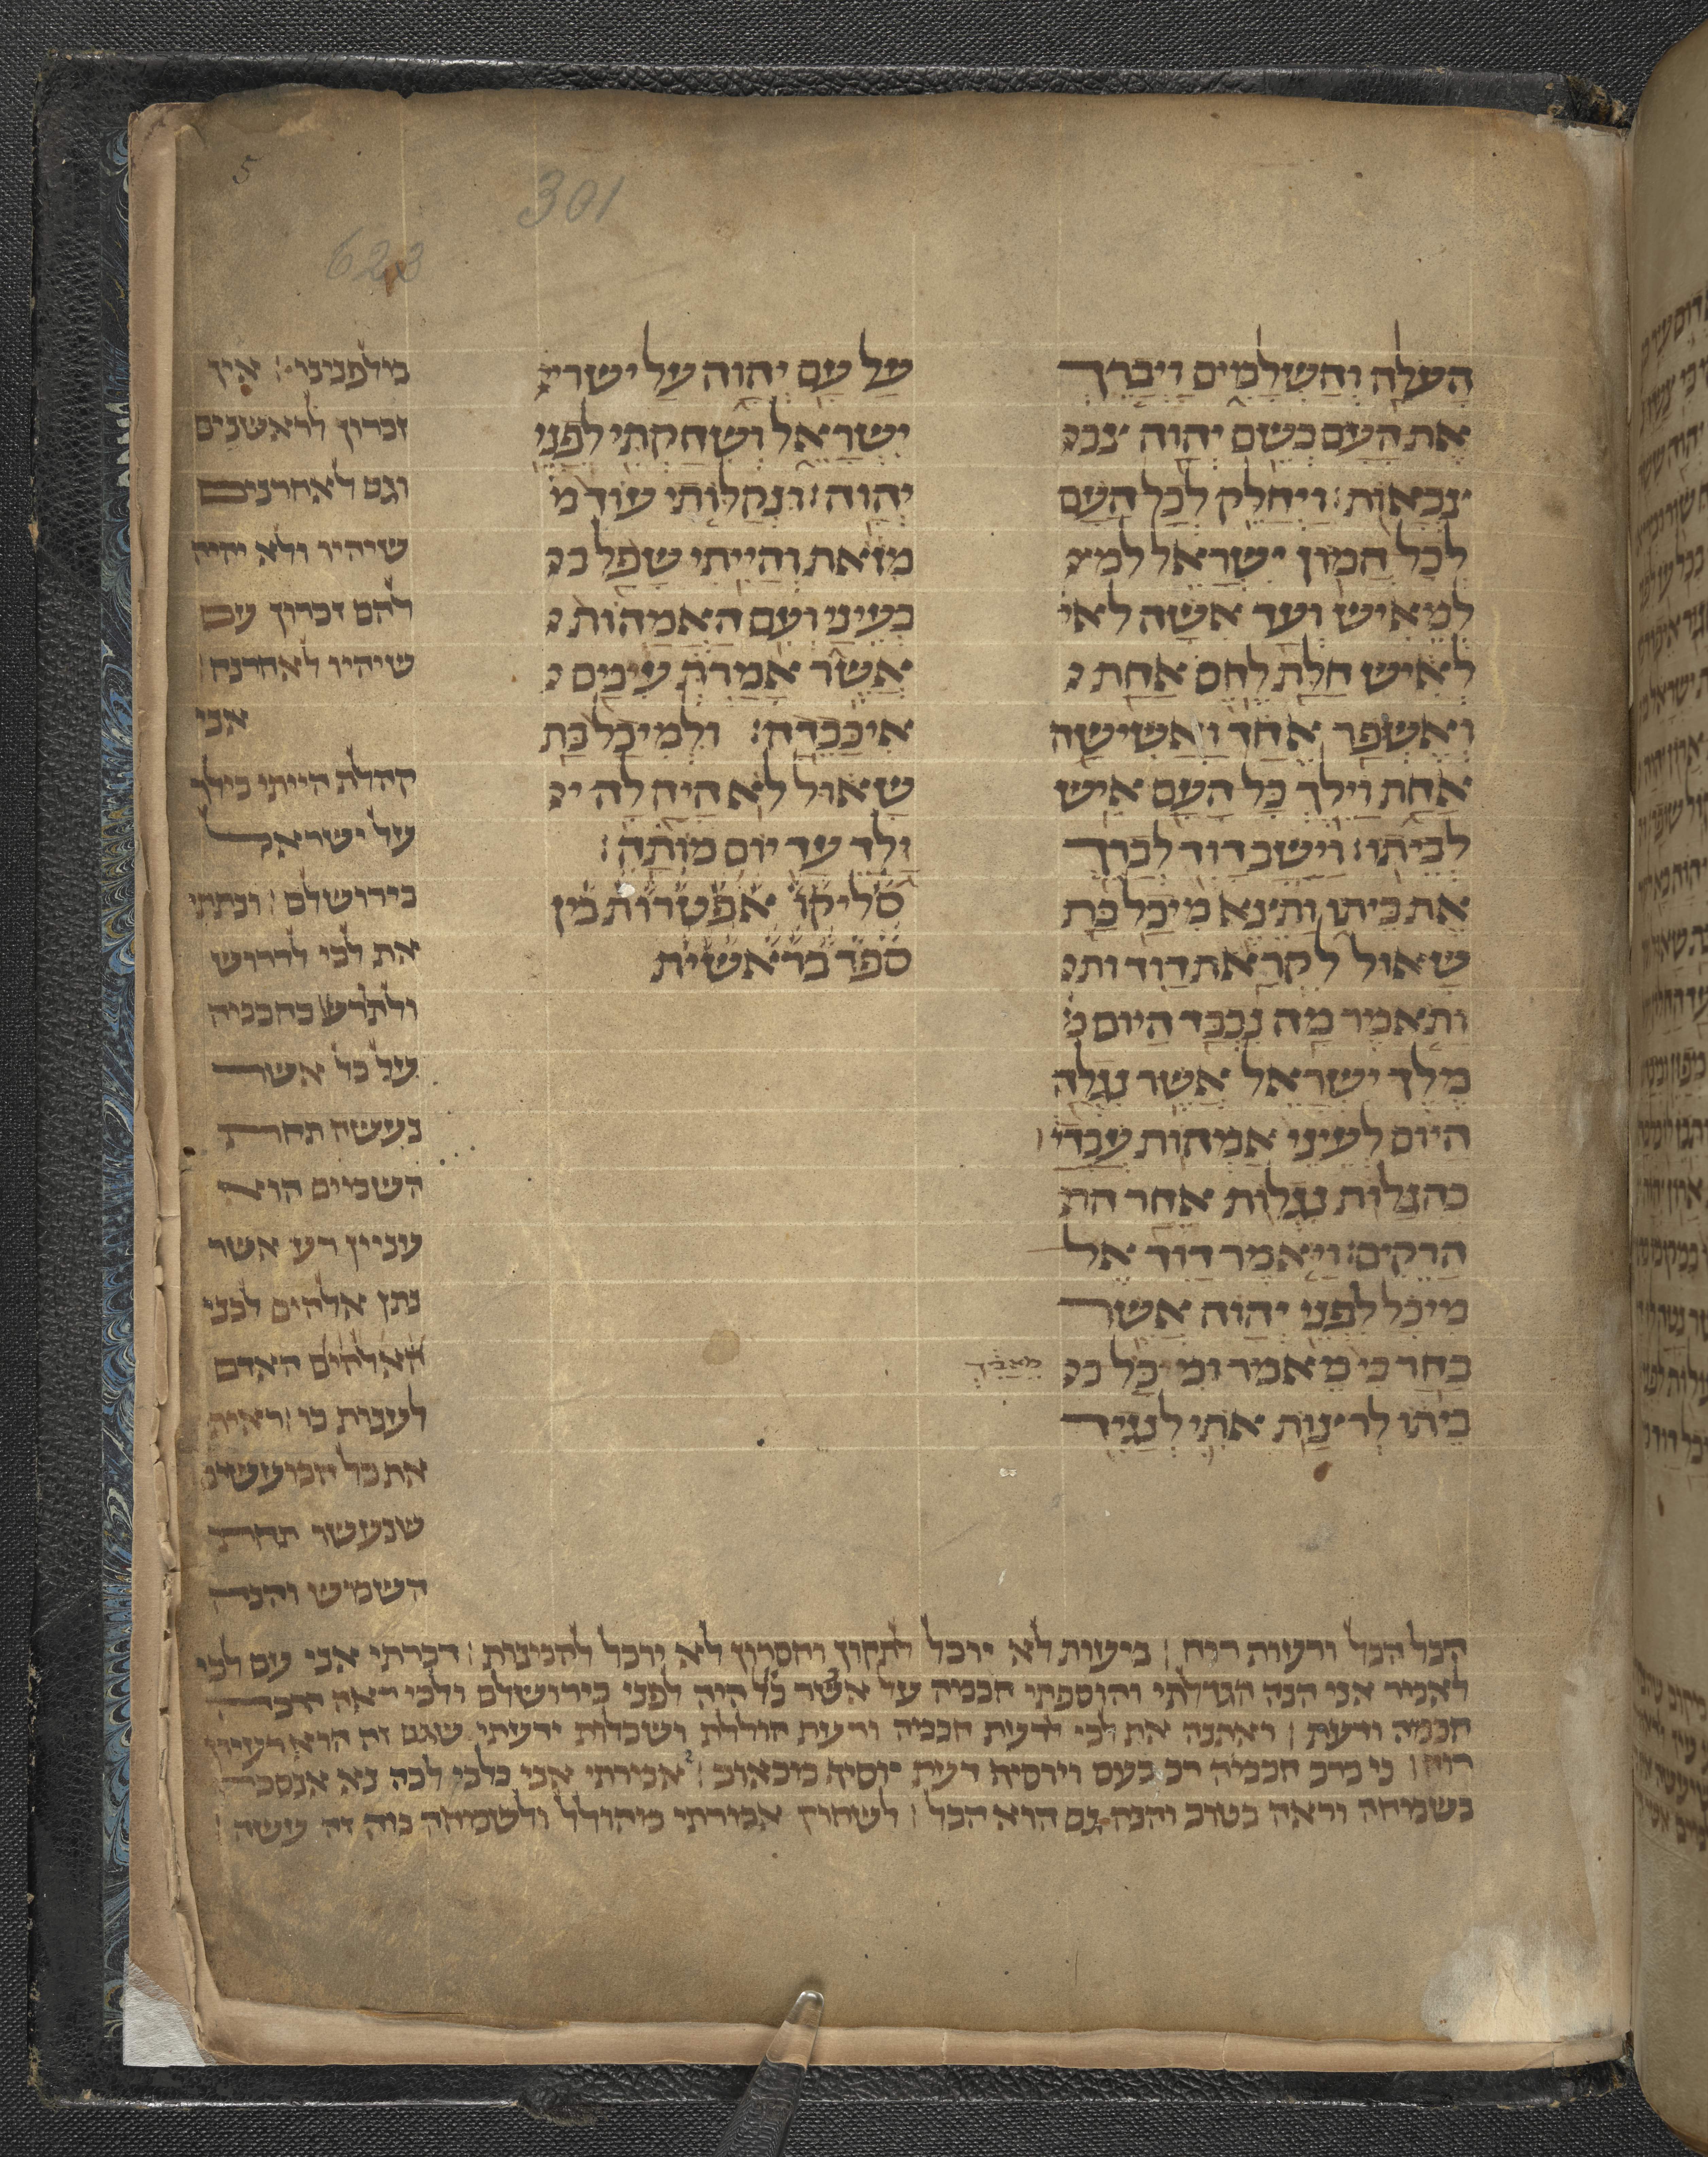 5
301
623
הָעֹלָה וְהַשְּׁלָמִים וַיְבָרֶךְ
אֶת הָעָם בְּשֵׁם יְהוָה צבו
צְבָאוֹת׃ וַיְחַלֵּק לְכָל הָעָם
לְכָל הֲמוֹן יִשְׂרָאֵל למא
לְמֵאִישׁ וְעַד אִשָּׁה לאי
לְאִישׁ חַלַּת לֶחֶם אַחַת ו
וְאֶשְׁפָּר אֶחָד וַאֲשִׁישָׁה
אֶחָת וַיֵּלֶךְ כָּל הָעָם אִישׁ
לְבֵיתוֹ׃ וַיָּשָׁב דָּוִד לְבָרֵךְ
אֶת בֵּיתוֹ וַתֵּצֵא מִיכַל בַּת
שָׁאוּל לִקְרַאת דָּוִד ותו
וַתֹּאמֶר מַה נִּכְבַּד הַיּוֹם מ
מֶלֶךְ יִשְׂרָאֵל אֲשֶׁר נִגְלָה
הַיּוֹם לְעֵינֵי אַמְהוֹת עֲבָדָי
כְּהִגָּלוֹת נִגְלוֹת אַחַר הר
הָרֵקִים׃ וַיֹּאמֶר דָּוִד אֶל
מִיכַל לִפְנֵי יְהוָה אֲשֶׁר
בָּחַר בִּי מֵאמר וּמִכָּל בו
מֵאָבִיךְ
בֵּיתוֹ לְצַוֹּת אֹתִי לְנָגִיד
עַל עַם יְהוָה עַל ישרא
יִשְׂרָאֵל וְשִׂחַקְתִּי לִפְנֵי
יְהוָה׃ וּנְקַלֹּתִי עוֹד מ
מִזֹּאת וְהָיִיתִי שָׁפָל בו
בְּעֵינָי וְעִם הָאֲמָהוֹת ו
אֲשֶׁר אָמַרְתְּ עִמָּם ו
אִכָּבֵדָה׃ וּלְמִיכַל בַּת
שָׁאוּל לֹא הָיָה לָהּ יו
וָלֶד עַד יוֹם מוֹתָהּ׃
סליקו אפטרות מן
ספר בראשית
מלפנינו׃ אין
זכרון לראשנים
וגם לאחרנים
שיהיו ולא יהיה
להם זכרון עם
שיהיו לאחרנה׃
אני
קהלת הייתי מלך
על ישראל
בירושלם׃ ונתתי
את לבי לדרוש
ולתור בחכמה
על כל אשר
נעשה תחת
השמים הוא
עניין רע אשר
נתן אלהים לבני
האדם
לענות בו׃ ראיתי
את כל המעשים
שנעשו תחת
השמש והנה
הכל הבל ורעות רוח׃ מעות לא יוכל לתקון וחסרון לא יוכל להמנות׃ דברתי אני עם לבי
לאמר אני הנה הגדלתי והוספתי חכמה על אשר היה לפני בירושלם ולבי ראה הרבה
חכמה ודעת׃ ואתנה את לבי לדעת חכמה ודעת הוללת ושכלות ידעתי שגם זה הוא רעיון
רוח׃ כי ברב חכמה רב כעס ויוסיף דעת יוסיף מכאוב׃ אמרתי אני בלבי לכה נא אנסכה
בשמחה וראה בטוב והנה גם הוא הבל׃ לשחוק אמרתי מהולל ולשמחה מה זה עשה׃